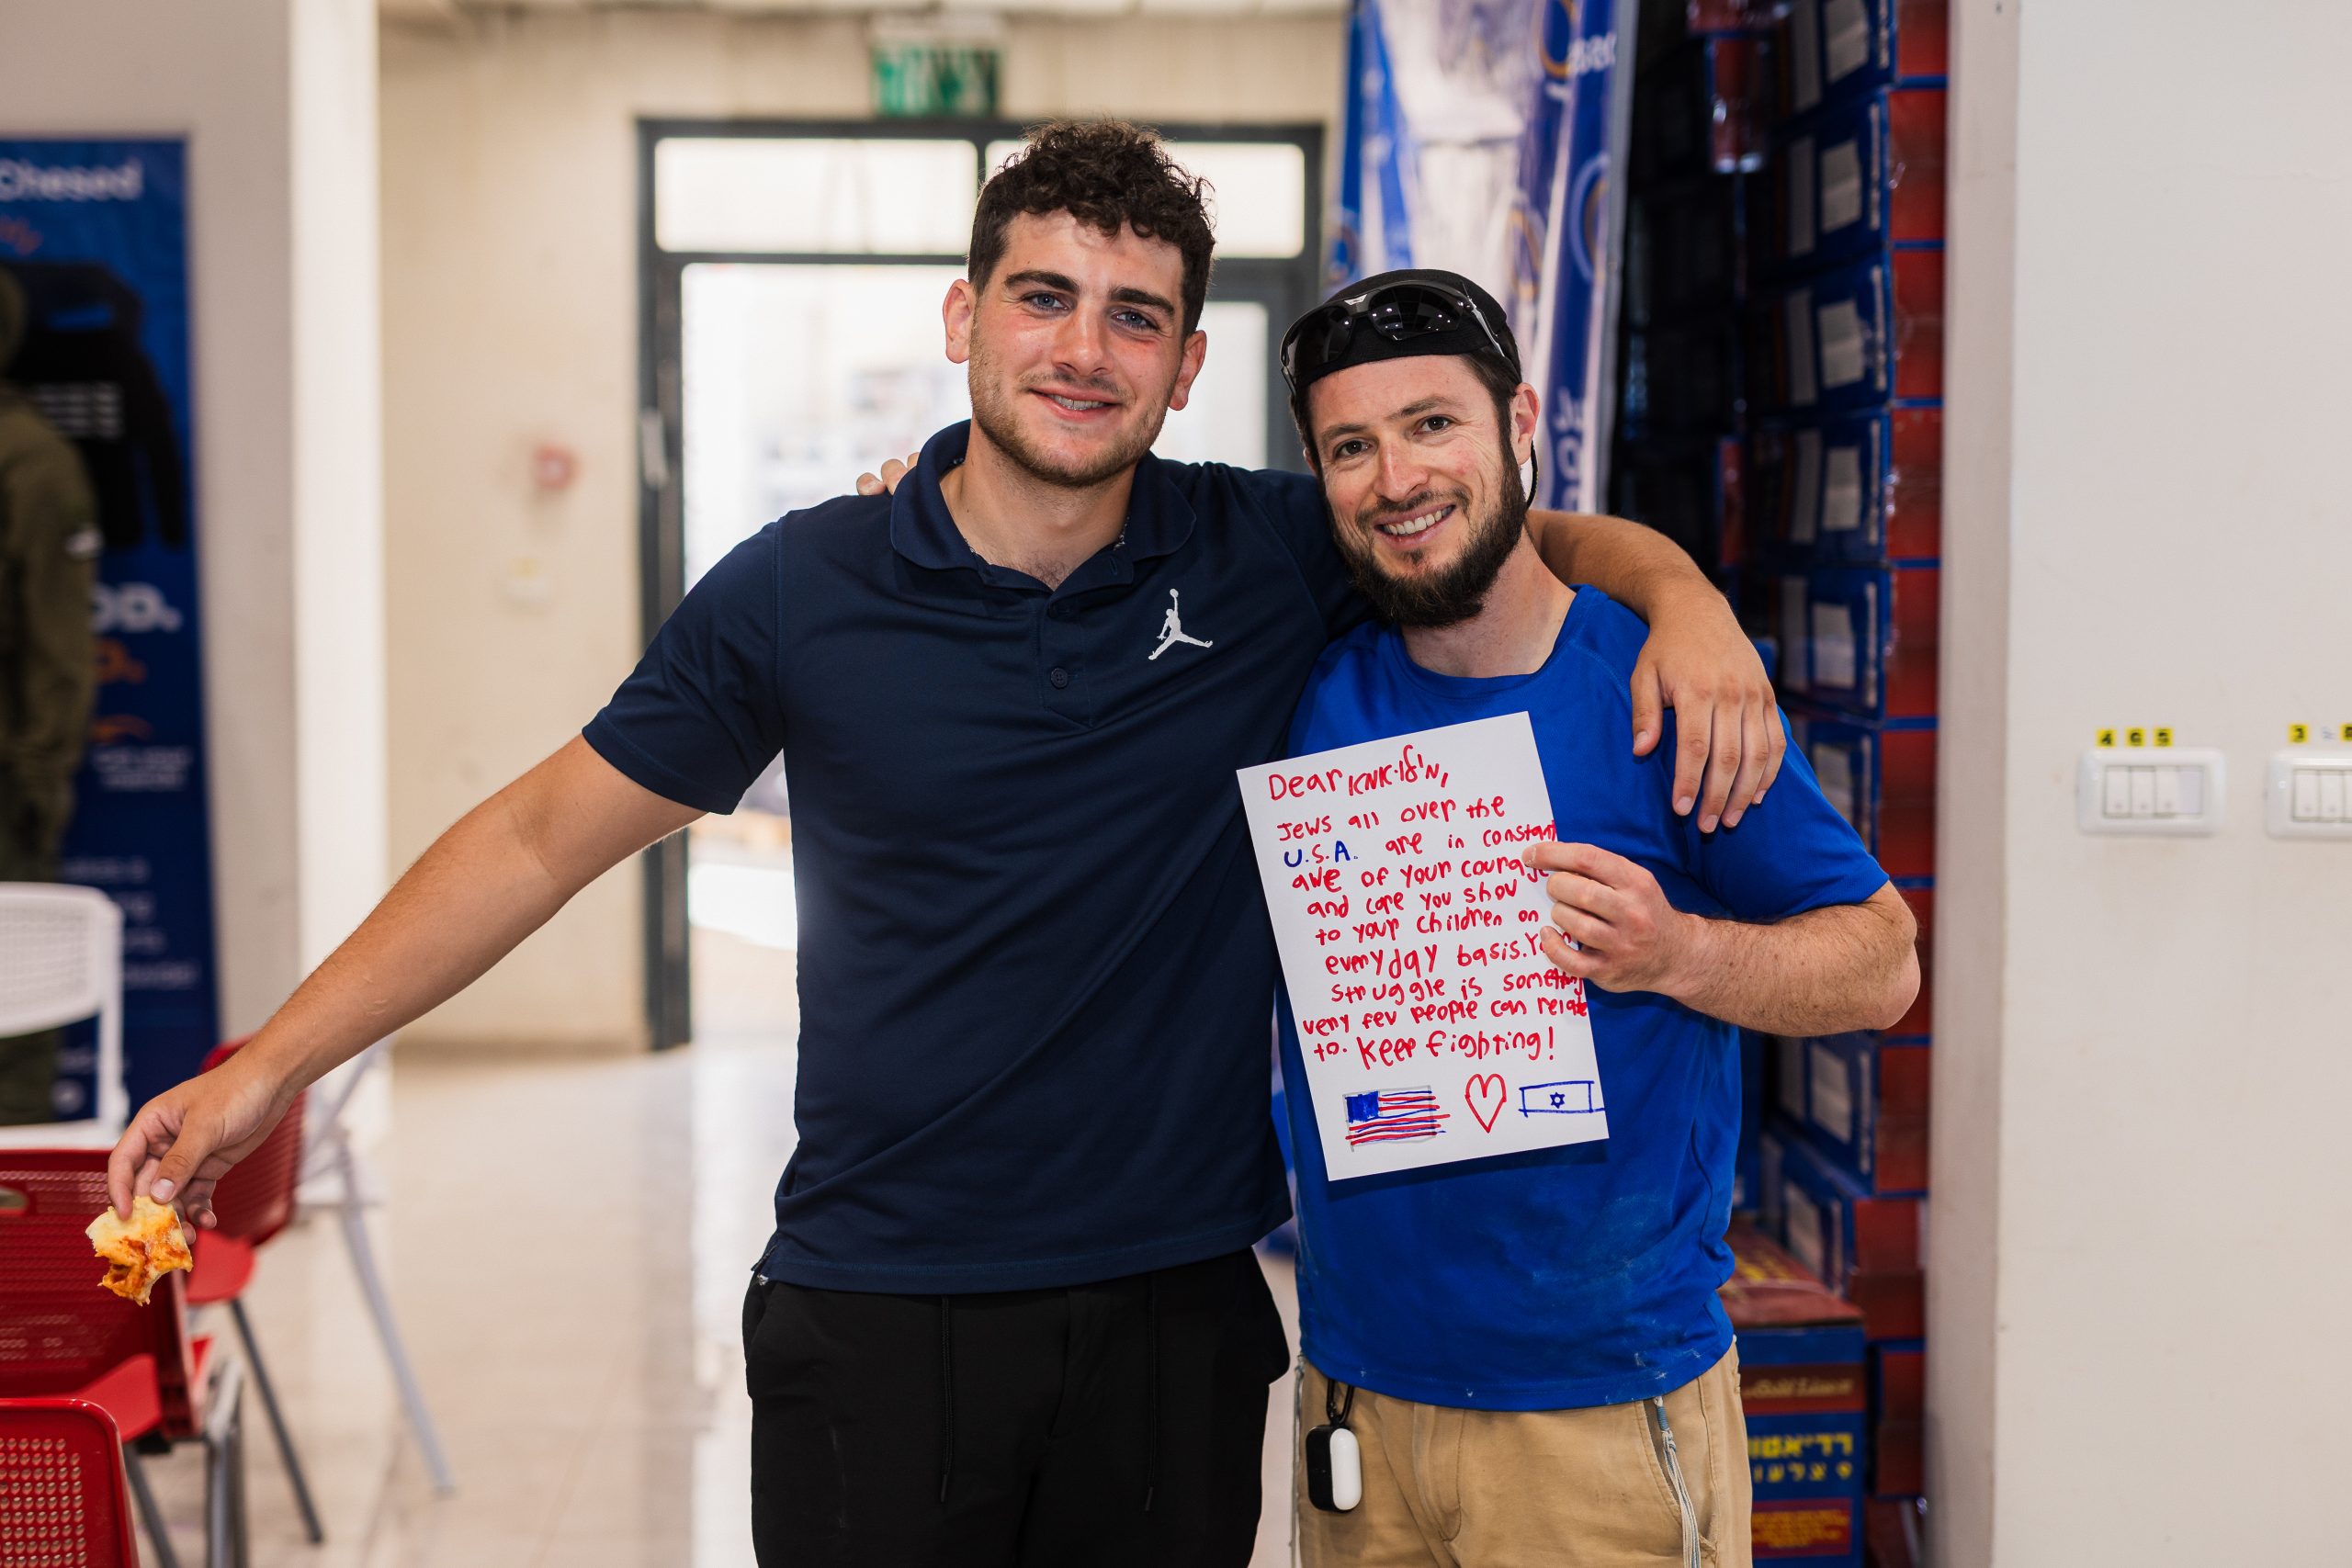 Chesed
Dear
Jews all over the
U.S.A. are in constant
awe of your courage
and care you show
to your children on
everyday basis.
struggle is something
very few people can relate
to. Keep fighting!
4 6 5
3